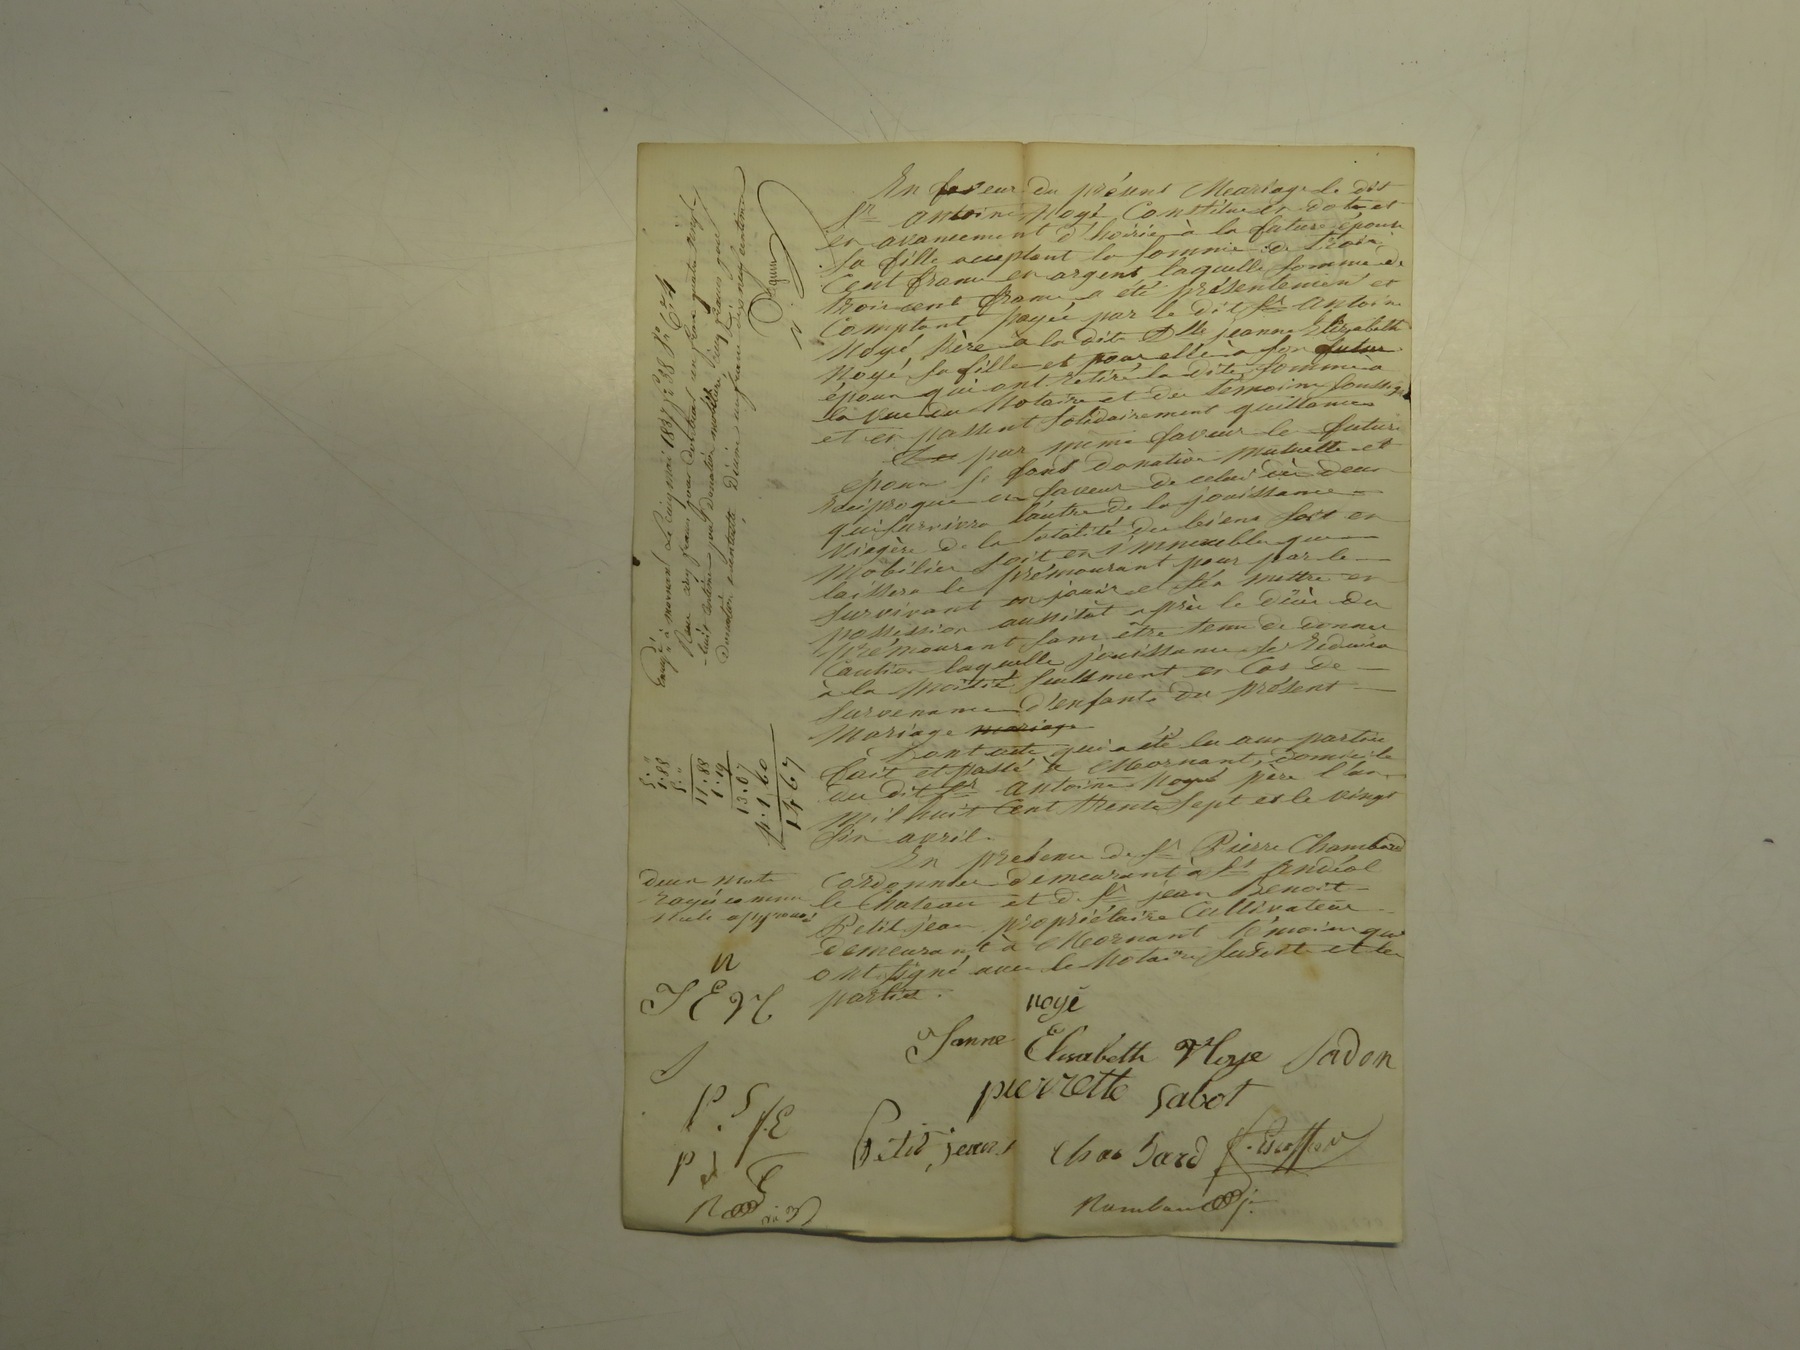 En faveur du présent Mariage le dit
Sr antoine Noyé Constitue en dote et
en avancement d'hoirie à la future épouse
Sa fille acceptant la Somme de trois
Cent francs en argent laquelle Somme de
trois cent francs a été présentement et
Comptant payée par le dit Sr antoine
Noyé, père a la dite Dlle jeanne Elizabeth
Noyé Sa fille et pour elle à Son futur
époux qui ont retiré la dite Somme a
la vue du Notaire et des témoins Soussignés
et en passent Solidairement quittance
Et par même faveur les futurs
époux se font donation mutuelle et
Réciproque en faveur de celui des deux
qui Survivra l'autre de la jouissance
Viagère de la totalité des biens soit en
Mobilier Soit en immeubles que
laissera le prémourant pour par le
Survivant en jouir et s'en mettre en
possession aussitôt après le décès du
prémourant Sans être tenu de donner
Caution laquelle jouissance se Réduira
à la Moitié Seulement en Cas de
Survenance d'enfants du présent
Mariage mariage
Dont acte qui a été lu aux parties
fait et passé à Mornant, domicile
du dit Sr Antoine Noyé père l'an
Mil huit Cent trente Sept et le vingt
Six avril.
En présence de Sr Pierre Chambard
Cordonnier demeurant à St Andéol
le Chateau et de Sr jean Benoit
Petit jean propriétaire Cultivateur
demeurant à Mornant témoins qui
ont Signé avec le Notaire Susdit et les
parties.
noyé
Janne Elisabeth Noye Sadon
pierrette Sabot
Petit jean Chambard
Rambaud
Enregé à mornant Le cinq mai 1837 fo 38
Reçu cinq francs pour
donation mobilière cinq francs pour
donation éventuelle Décime un franc dix neuf centimes
5. "
1.88
5. "
11.88
1.19
13.07
p. 1.60
14.67
deux mots
rayés comme
nuls approuvés
N
J E N
S
P. S
P j